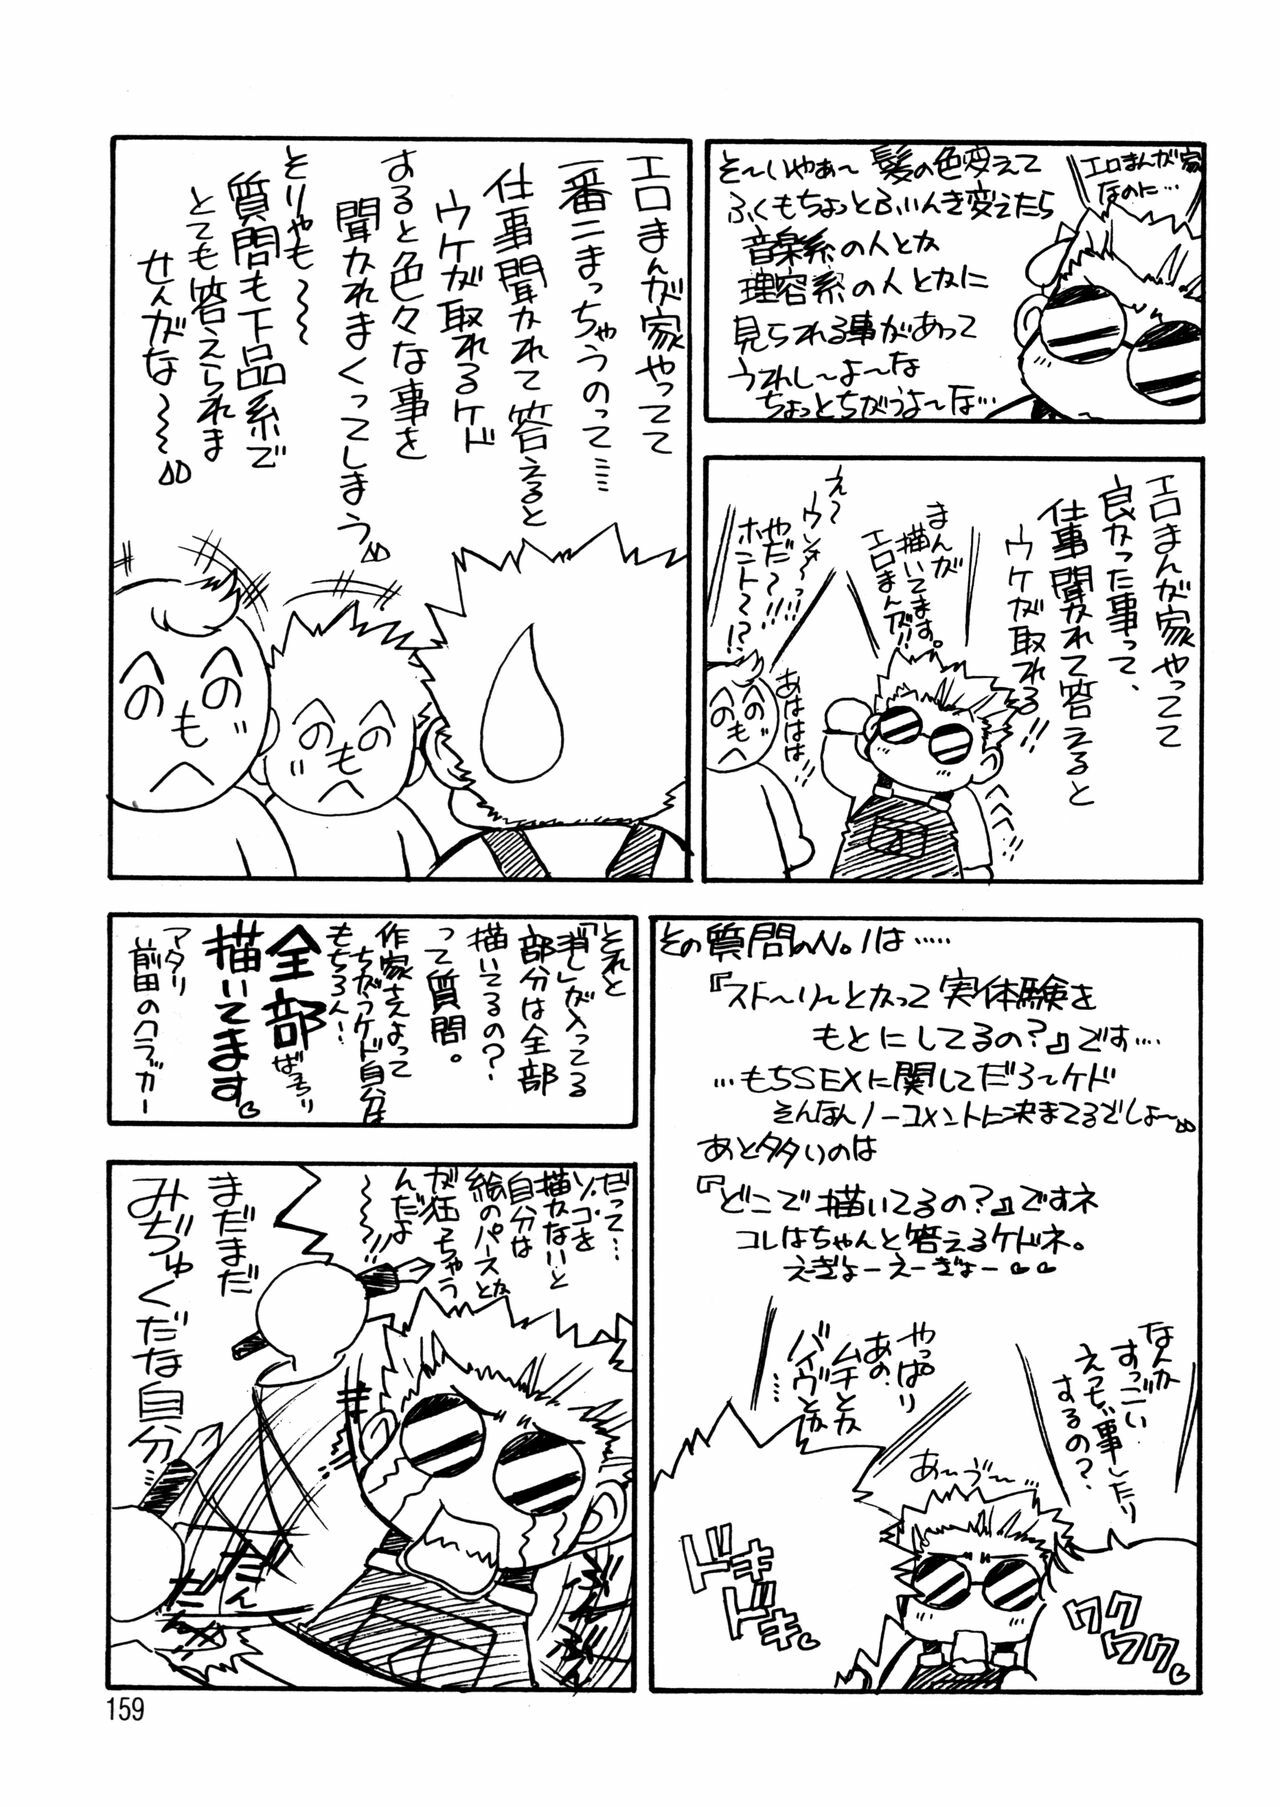 そ〜いやぁ〜髪の色変えて
ふくもちょっとふいんき変えたら
音楽系の人とか
理容系の人とかに
見られる事があって
うれし〜よ〜な
ちょっとちがうよ〜な…
エロまんが家
なのに…
エロまんが家やってて
良かった事って、
仕事聞かれて答えると
ウケが取れる!!
まんが
描いてます。
エロまんが!!
え〜
ウッソ〜っ!!
やだ〜!!!
ホント〜!?
あははは
へへへ
エロまんが家やってて
一番こまっちゃうのって……
仕事聞かれて答えると
ウケが取れるケド
あると色々な事を
聞かれまくってしまう
とりゃも〜〜
質問も下品系で
とても答えられま
せんがな〜〜〜
その質問のNo.1は……
『スト〜リ〜とかって実体験を
もとにしてるの?』です……
…もちSEXに関してだろ〜ケド
そんなんノーコメントに決まてるでしょ〜
あと多いのは
『どこで描いてるの?』ですネ
コレはちゃんと答えるケドネ。
えぎょーえーぎょー♡♡
なんか
すっごい
えっちぃ事したり
するの?
やっぱり
あの、
ムチとか
バイヴとか
……
あ〜う〜
ドキ
ドキ
ドキ
ドキ♡
ワク
ワク
ワク
ワク♡
それと
「消し」が入ってる
部分は全部
描いてるの?
って質問。
作家さんよって
ちがうケド自分は
もちろん!
全部
ばっちり
描いてます♡
アタリ
前田のクラッカー
だって…
ソコを
描かないと
自分は
絵のパースとか
が狂っちゃう
んだよ
〜〜!!!
まだまだ
みぢゅくだな自分…
だん
だん
159